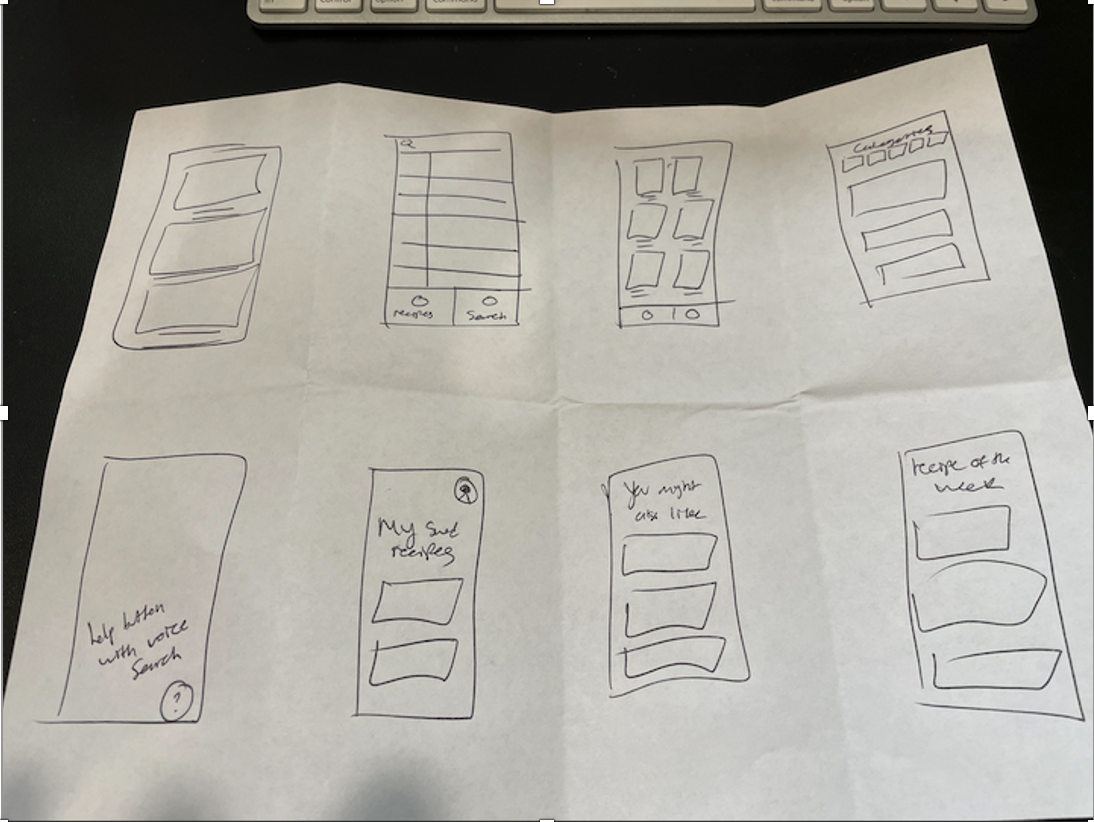 control
option
command
command
option
Q
recipes
Search
Categories
help button
with voice
Search
?
My
recipes
You might
also like
recipe of the
week